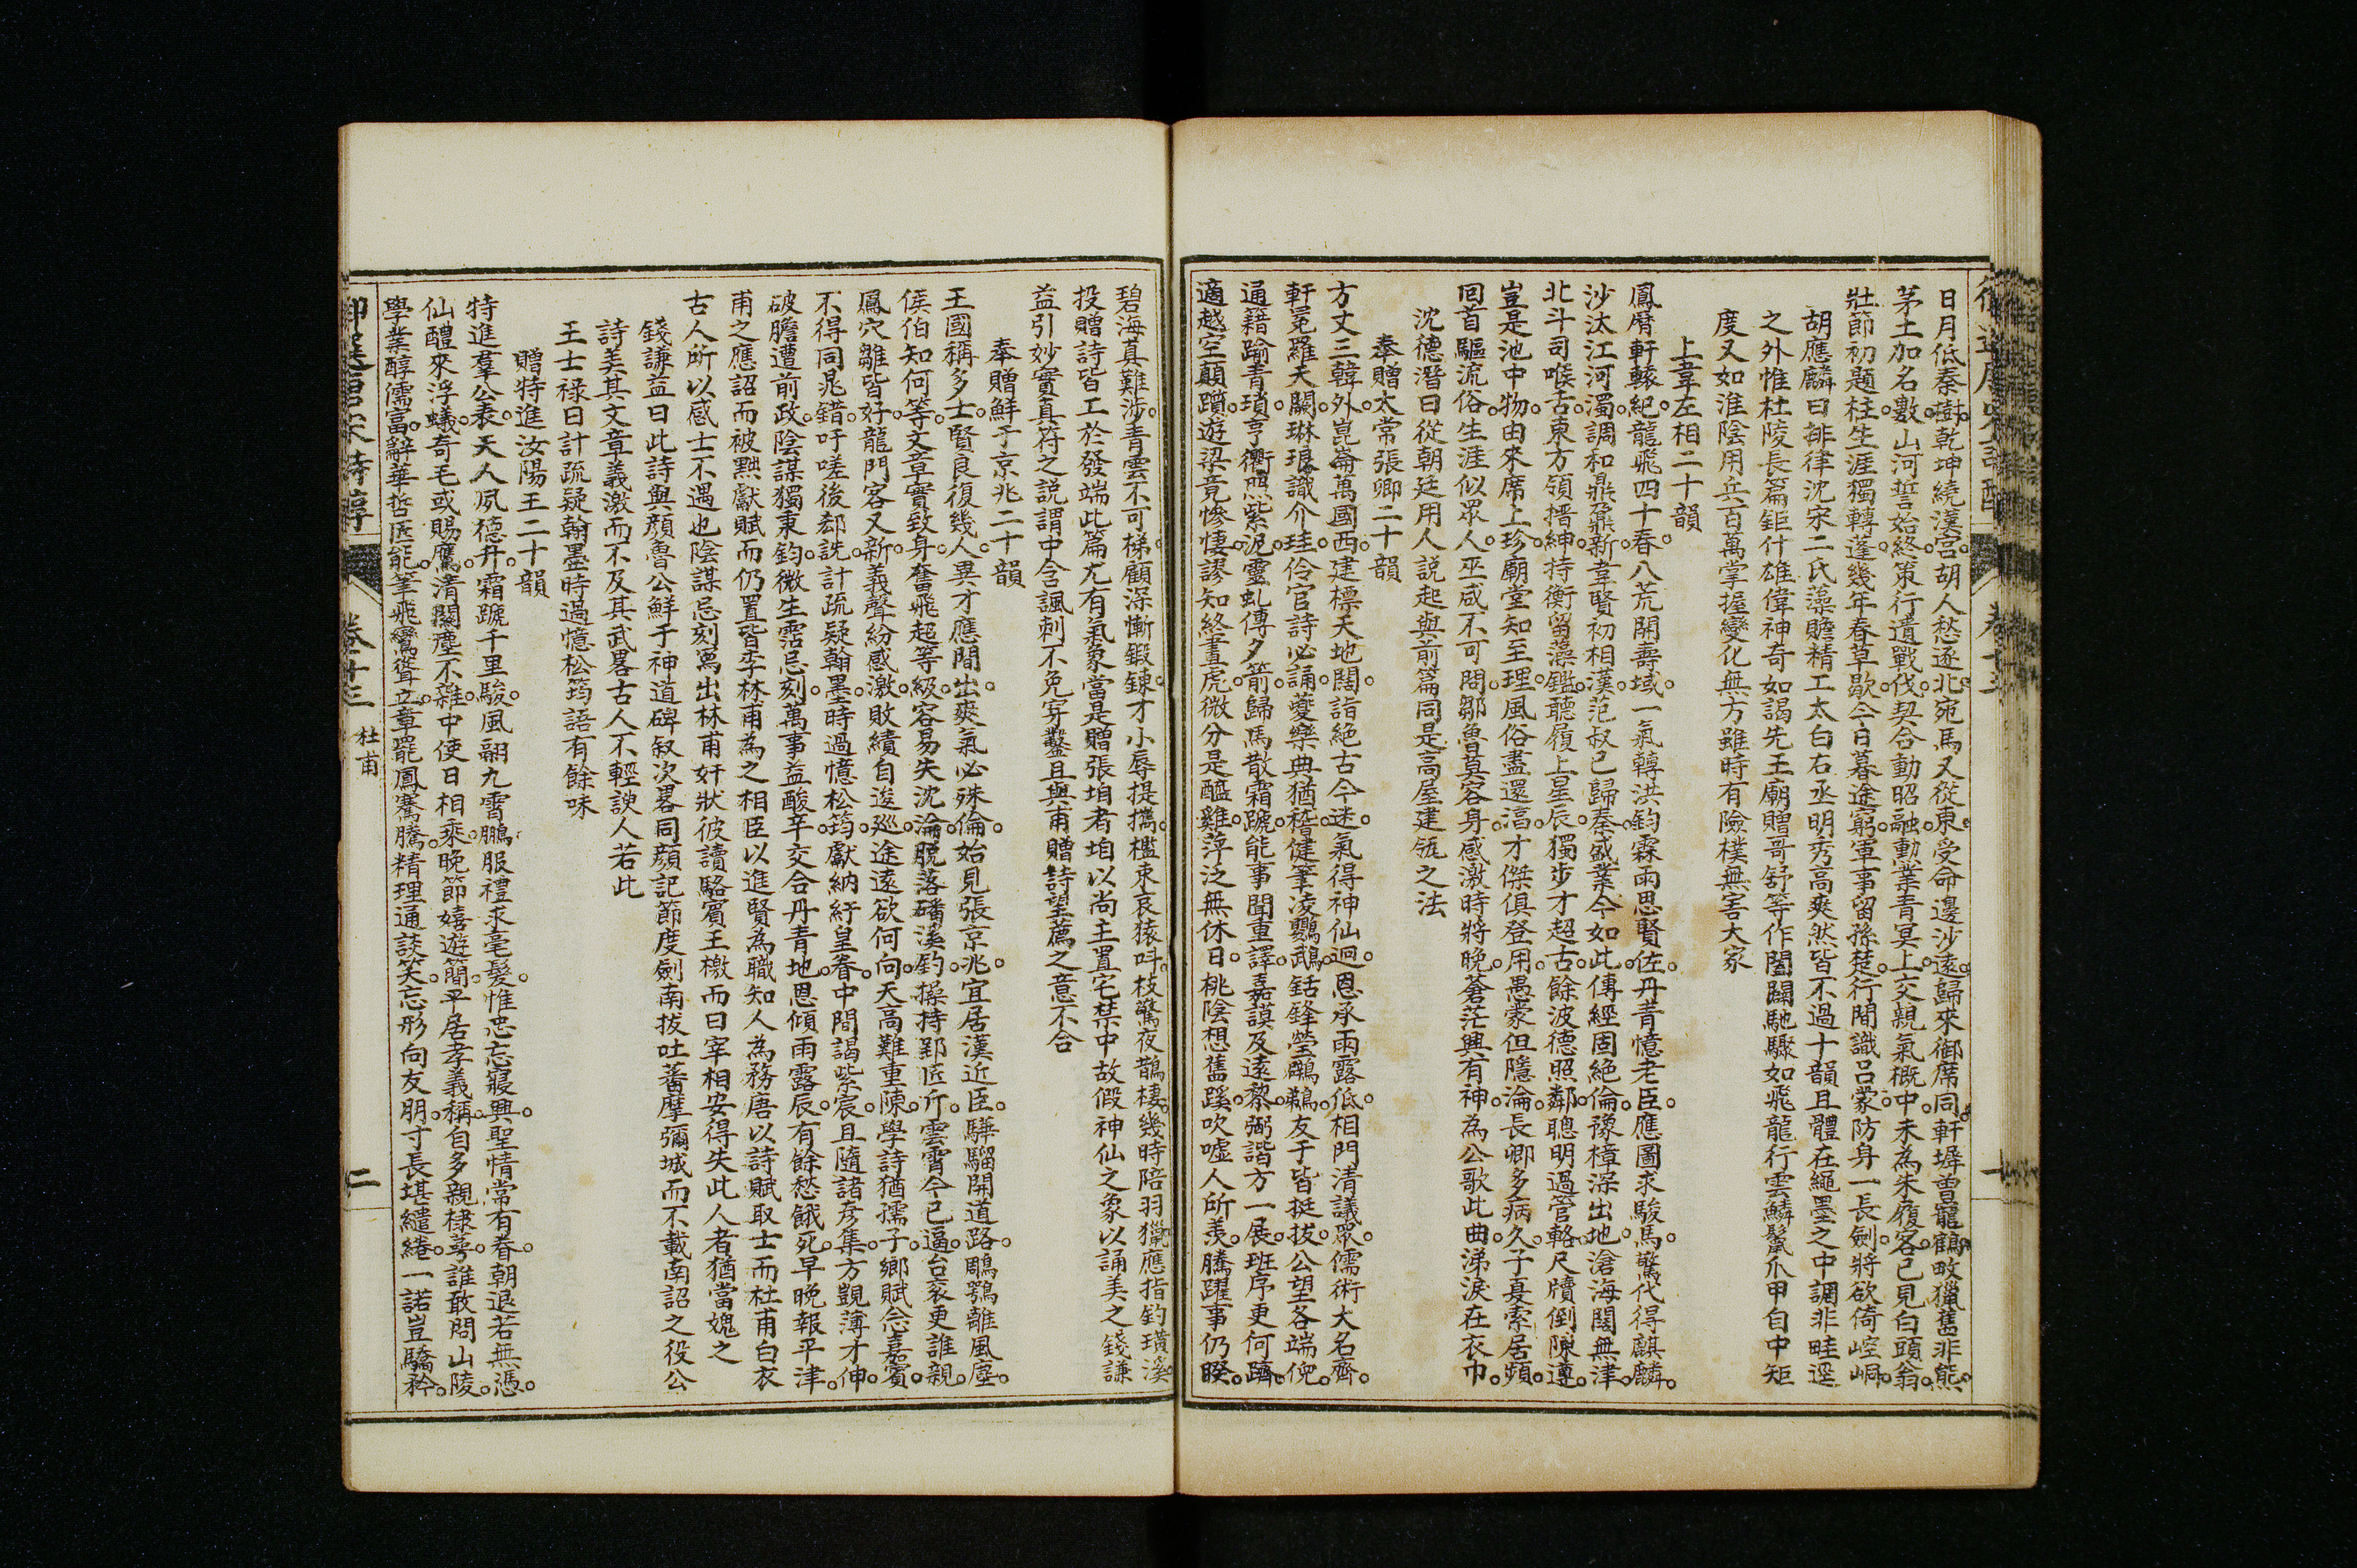 日月低秦樹乾坤繞漢宮胡人愁逐北宛馬又從東受命邊沙遠歸來御席同軒墀曾寵鶴畋獵舊非熊
茅土加名數山河誓始終策行遺戰伐契合動昭融勳業青冥上交親氣概中未為朱履客已見白頭翁
壯節初題柱生涯獨轉蓬幾年春草歇今日暮途窮軍事留孫楚行間識呂蒙防身一長劍將欲倚崆峒
胡應麟曰排律沈宋二氏藻贍精工太白右丞明秀高爽然皆不過十韻且體在繩墨之中調非畦逕
之外惟杜陵長篇鉅什雄偉神奇如謁先王廟贈哥舒等作闔闢馳驟如飛龍行雲鱗鬣爪甲自中矩
度又如淮陰用兵百萬掌握變化無方雖時有險樸無害大家
上韋左相二十韻
鳳曆軒轅紀龍飛四十春八荒開壽域一氣轉洪鈞霖雨思賢佐丹青憶老臣應圖求駿馬驚代得麒麟
沙汰江河濁調和鼎鼐新韋賢初相漢范叔已歸秦盛業今如此傳經固絕倫豫樟深出地滄海闊無津
北斗司喉舌東方領搢紳持衡留藻鑑聽履上星辰獨步才超古餘波德照鄰聰明過管輅尺牘倒陳遵
豈是池中物由來席上珍廟堂知至理風俗盡還淳才傑俱登用愚蒙但隱淪長卿多病久子夏索居頻
回首驅流俗生涯似眾人巫咸不可問鄒魯莫容身感激時將晚蒼茫興有神為公歌此曲涕淚在衣巾
沈德潛曰從朝廷用人說起與前篇同是高屋建瓴之法
奉贈太常張卿二十韻
方丈三韓外崑崙萬國西建標天地闊詣絕古今迷氣得神仙迥恩承雨露低相門清議眾儒術大名齊
軒冕羅天闕琳琅識介珪伶官詩必誦夔樂典猶稽健筆凌鸚鵡銛鋒瑩鸊鵜友于皆挺拔公望各端倪
通籍踰青瑣亨衢照紫泥靈虬傳夕箭歸馬散霜蹄能事聞重譯嘉謨及遠黎弼諧方一展班序更何躋
適越空顛躓遊梁竟慘悽謬知終畫虎微分是醯雞萍泛無休日桃陰想舊蹊吹噓人所羨騰躍事仍睽
碧海真難涉青雲不可梯顧深慚鍛鍊才小辱提攜檻束哀猿叫枝驚夜鵲棲幾時陪羽獵應指釣璜溪
投贈詩皆工於發端此篇尤有氣象當是贈張垍者垍以尚主置宅禁中故假神仙之象以誦美之錢謙
益引妙寶真符之說謂中含諷刺不免穿鑿且與甫贈詩望薦之意不合
奉贈鮮于京兆二十韻
王國稱多士賢良復幾人異才應間出爽氣必殊倫始見張京兆宜居漢近臣驊騮開道路鵰鶚離風塵
侯伯知何等文章實致身奮飛超等級容易失沈淪脫落磻溪釣操持郢匠斤雲霄今已逼台袞更誰親
鳳穴雛皆好龍門客又新義聲紛感激敗績自逡巡途遠欲何向天高難重陳學詩猶孺子鄉賦忝嘉賓
不得同晁錯吁嗟後郄詵計疏疑翰墨時過憶松筠獻納紆皇眷中間謁紫宸且隨諸彥集方覬薄才伸
破膽遭前政陰謀獨秉鈞微生霑忌刻萬事益酸辛交合丹青地恩傾雨露辰有餘愁餓死早晚報平津
甫之應詔而被黜獻賦而仍置皆李林甫為之相臣以進賢為職知人為務唐以詩賦取士而杜甫白衣
古人所以感士不遇也陰謀忌刻寫出林甫奸狀彼讀駱賓王檄而曰宰相安得失此人者猶當媿之
錢謙益曰此詩與顏魯公鮮于神道碑敘次畧同顏記節度劍南拔吐蕃摩彌城而不載南詔之役公
詩美其文章義激而不及其武畧古人不輕諛人若此
王士祿曰計疏疑翰墨時過憶松筠語有餘味
贈特進汝陽王二十韻
特進羣公表天人夙德升霜蹄千里駿風翮九霄鵬服禮求毫髮惟忠忘寢興聖情常有眷朝退若無憑
仙醴來浮蟻奇毛或賜鷹清關塵不雜中使日相乘晚節嬉遊簡平居孝義稱自多親棣萼誰敢問山陵
學業醇儒富辭華哲匠能筆飛鸞聳立章罷鳳騫騰精理通談笑忘形向友朋寸長堪繾綣一諾豈驕矜
御選唐宋詩醇 卷十三 杜甫 二